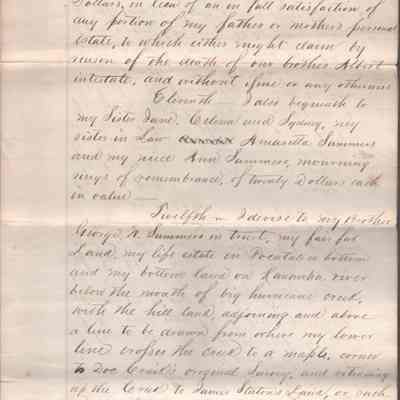 Dollars, in lieu of an in full satisfaction of
any portion of my father or mother's personal
Estate, to which either might claim by
reason of the death of our brother Albert
intestate, and without issue or any otherwise
Eleventh — I also bequeath to
my Sister Jane, Celena and Sydney, my
sister in Law Amacetta Summers
and my niece Ann Summers, mourning
rings of remembrance, of twenty Dollars each
in value —
Twelfth — I devise to my brother
George W. Summers in trust, my
Land, my life estate in Pocatalico bottom
and my bottom land on Kanawha river
below the mouth of big hurricane creek,
with the hill land, adjoining and above
a line to be drawn from where my lower
line crosses the creek to a maple, corner
to Doc Craik's original Survey, and extending
up the Creek to James Staton's Land, or such